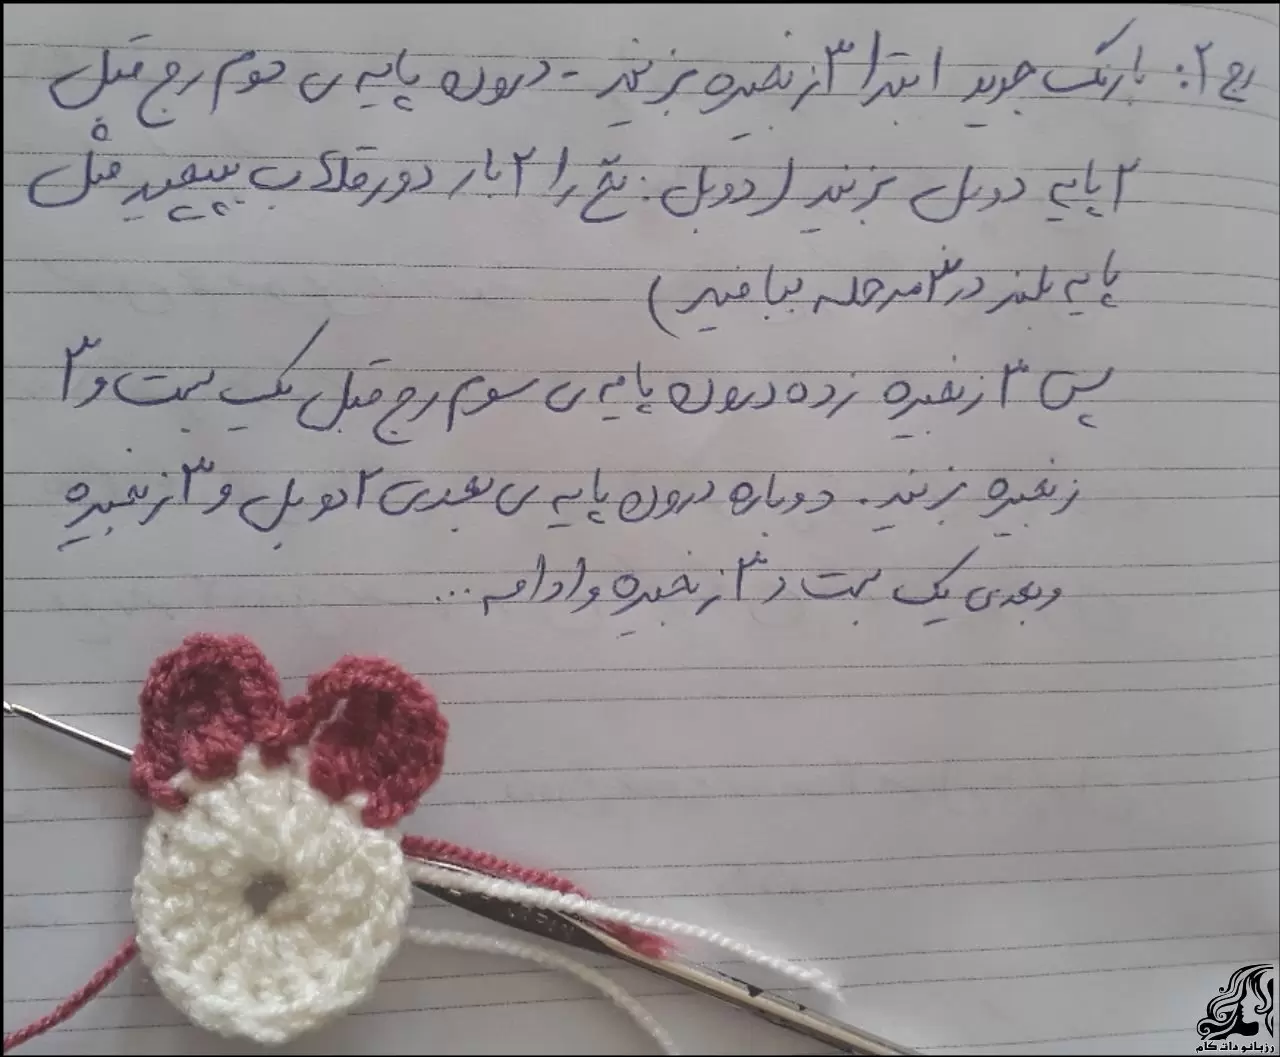 رج ۲: با رنگ جدید ابتدا ۳ زنجیره بزنید - درون پایه ی دوم رج قبل
۲ پایه دوبل بزنید (دوبل: نخ را ۲ بار دور قلاب بپیچید مثل
پایه بلند در ۳ مرحله ببافید)
پس ۳ زنجیره زده درون پایه ی سوم رج قبل یک بست و ۳
زنجیره بزنید. دوباره درون پایه ی بعدی ۲ دوبل و ۳ زنجیره
و بعدی یک بست و ۳ زنجیره و ادامه ...
رزبانو دات کام